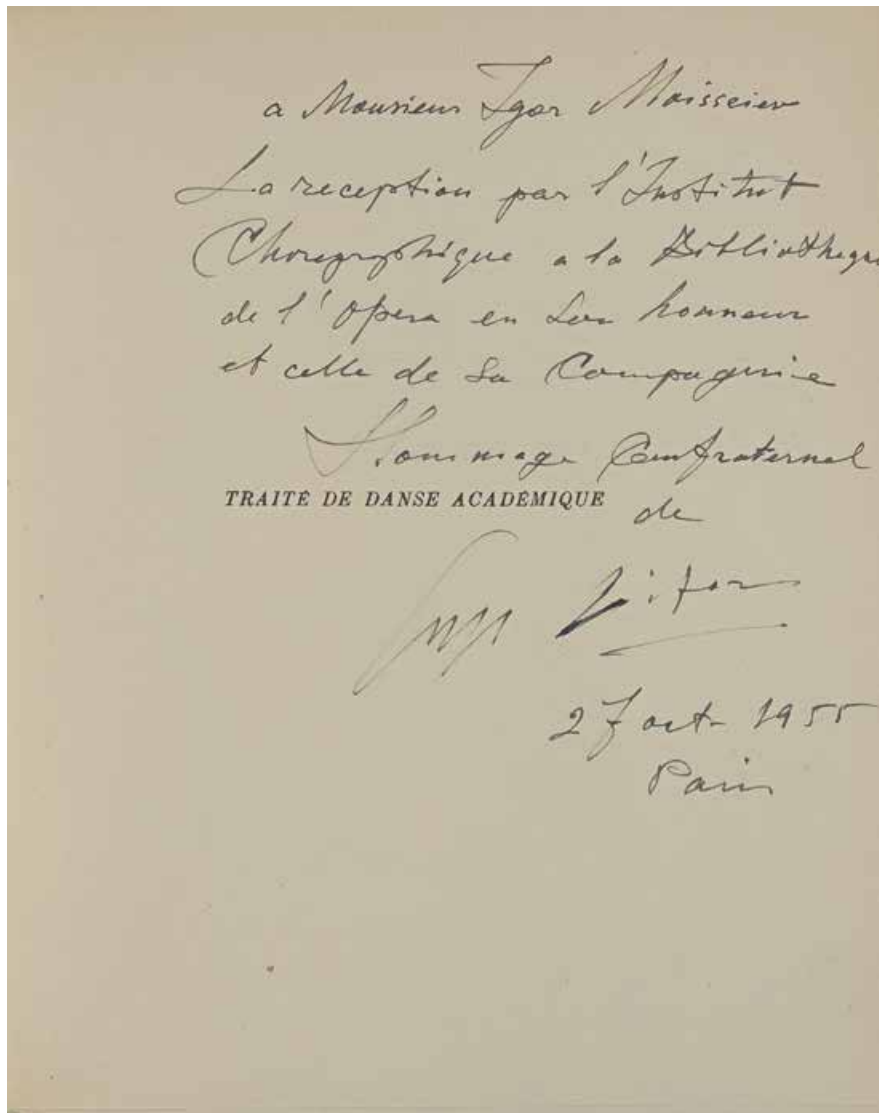 a Monsieur Igor Moisseiev
La reception par l'Institut
Choregraphique a la Bibliotheque
de l'Opera en son honneur
et celle de sa Compagnie
Hommage Confraternel
TRAITÉ DE DANSE ACADÉMIQUE
de
Serge Lifar
27 oct- 1955
Paris